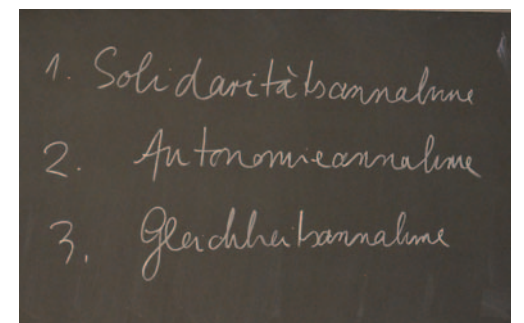 1. Solidaritätsannahme
2. Autonomieannahme
3. Gleichheitsannahme